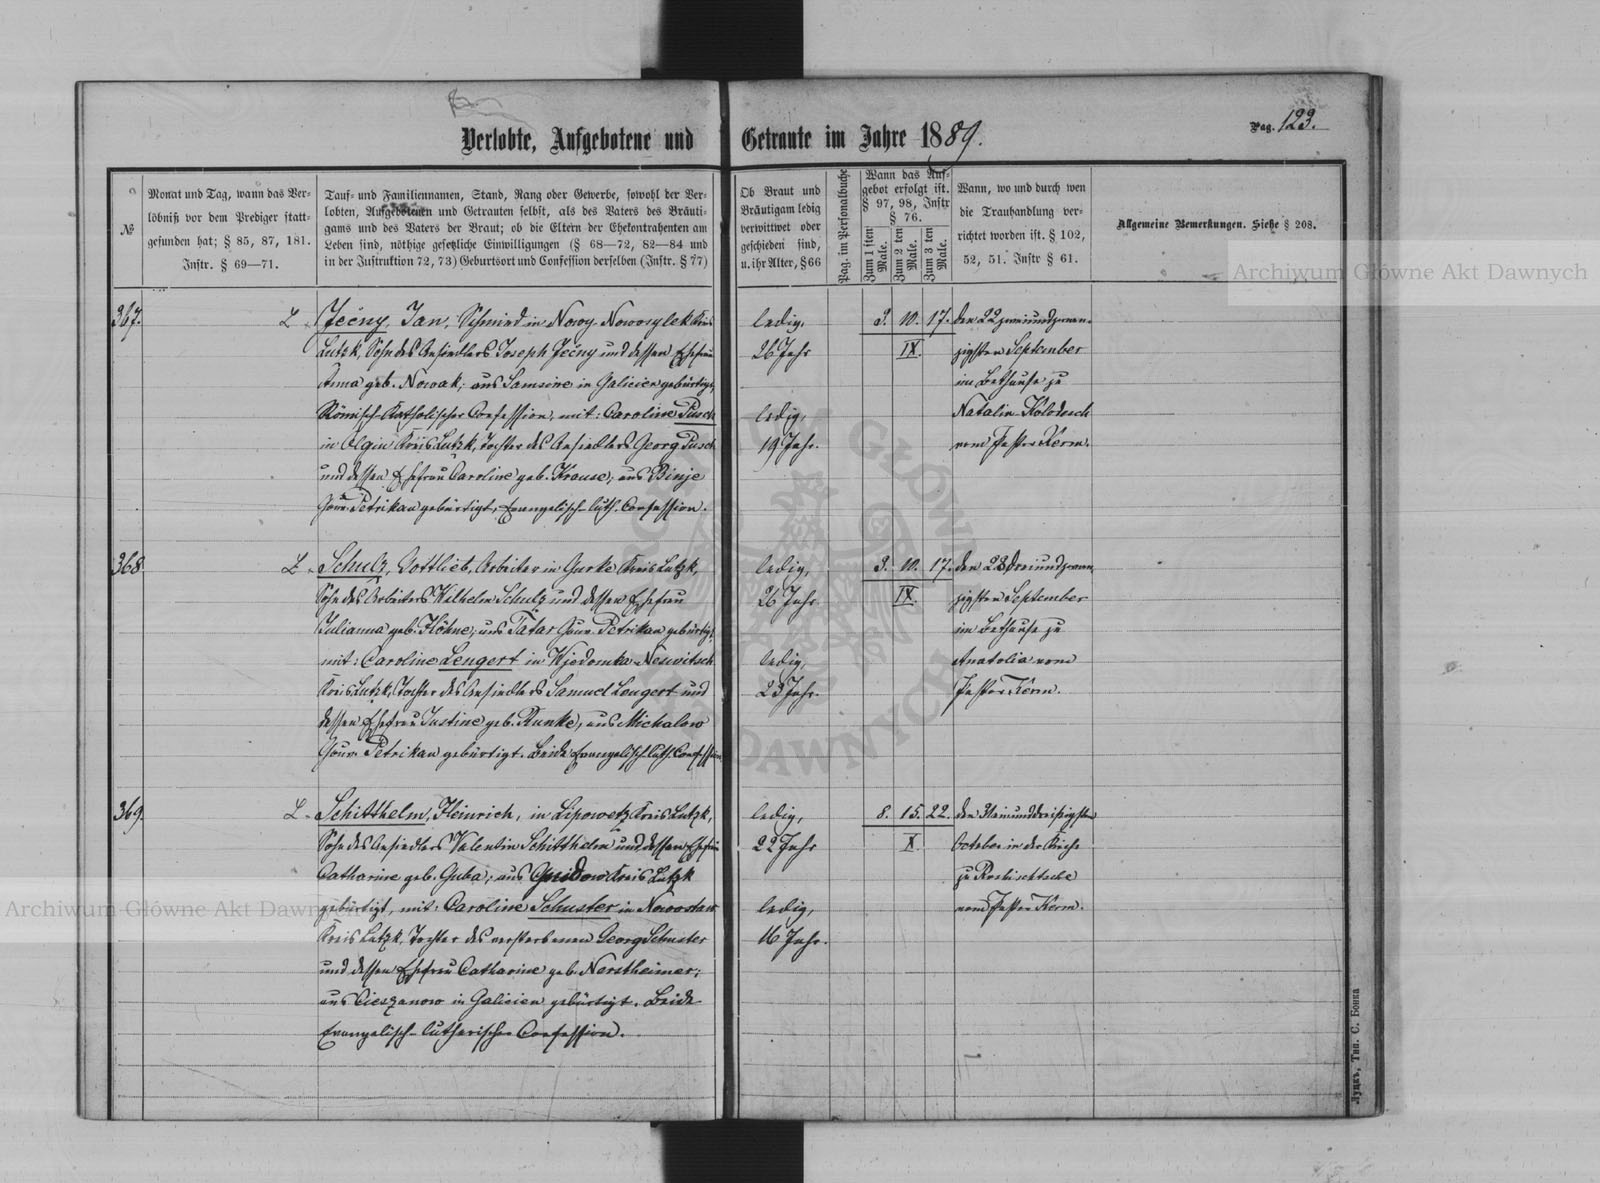 Verlobte, Aufgebotene und Getraute im Jahre 1889.
Pag. 123.
№
Monat und Tag, wann das Ver-
löbniß vor dem Prediger statt-
gefunden hat; § 85, 87, 181.
Instr. § 69—71.
Tauf- und Familiennamen, Stand, Rang oder Gewerbe, sowohl der Ver-
lobten, Aufgebotenen und Getrauten selbst, als des Vaters des Bräuti-
gams und des Vaters der Braut; ob die Eltern der Ehekontrahenten am
Leben sind, nöthige gesetzliche Einwilligungen (§ 68—72, 82—84 und
in der Justruktion 72, 73) Geburtsort und Confession derselben (Instr. § 77)
Ob Braut und
Bräutigam ledig
verwittwet oder
geschieden sind,
u. ihr Alter, § 66
Pag. im Personalbuche
Wann das Auf-
gebot erfolgt ist.
§ 97, 98, Instr
§ 76.
Zum 1 sten Male.
Zum 2 ten Male.
Zum 3 ten Male.
Wann, wo und durch wen
die Trauhandlung ver-
richtet worden ist. § 102,
52, 51. Instr § 61.
Allgemeine Bemerkungen. Siehe § 208.
367.
L.
Ječny, Jan, Schmied in Nowy-Nowosylek Kreis
Lutzk, Sohn des Ansiedlers Joseph Ječny und dessen Ehefrau
Anna geb. Nowak, aus Samsine in Galicien gebürtig,
Römisch-Katholischer Confession, mit: Caroline Pusch
in Olgin Kreis Lutzk, Tochter des Ansiedlers Georg Pusch
und dessen Ehefrau Caroline geb. Krause, aus Binje
Gouv. Petrikau gebürtigt, Evangelisch-luth. Confession.
ledig,
26 Jahr
ledig,
19 Jahr.
3. 10. 17.
IX.
den 22 zweiundzwan-
zigsten September
im Bethause zu
Natalin-Kolodesch
vom Pastor Kerm.
368.
L.
Schulz, Gottlieb, Arbeiter in Gurke Kreis Lutzk,
Sohn des Arbeiters Wilhelm Schulz und dessen Ehefrau
Julianna geb. Höhne, aus Tatar Gouv. Petrikau gebürtig,
mit: Caroline Lengert in Wjedomka-Neswitsch
Kreis Lutzk, Tochter des Ansiedlers Samuel Lengert und
dessen Ehefrau Justine geb. Runke, aus Michalow
Gouv. Petrikau gebürtigt. Beide Evangelisch-Luth. Confession
ledig,
26 Jahr
ledig,
23 Jahr.
3. 10. 17.
IX.
den 23 dreiundzwan
zigsten September
im Bethause zu
Anatolia vom
Pastor Kerm.
369.
L.
Schitthelm, Heinrich, in Lipowetz Kreis Lutzk,
Sohn des Ansiedlers Valentin Schitthelm und dessen Ehefrau
Catharine geb. Guba, aus Gnidow Kreis Lutzk
gebürtigt, mit: Caroline Schuster in Nowostaw
Kreis Lutzk, Tochter des verstorbenen Georg Schuster
und dessen Ehefrau Catharine geb. Nerstheimer;
aus Cieszanow in Galicien gebürtigt. Beide
Evangelisch-Lutherischer Confession.
ledig,
22 Jahr
ledig,
16 Jahr.
8. 15. 22.
X.
den 31 einunddreißigsten
October in der Kirche
zu Roshischtsche
vom Pastor Kerm.
Луцкъ, Тип. С. Бонка
Archiwum Główne Akt Dawnych
Archiwum Główne Akt Dawnych